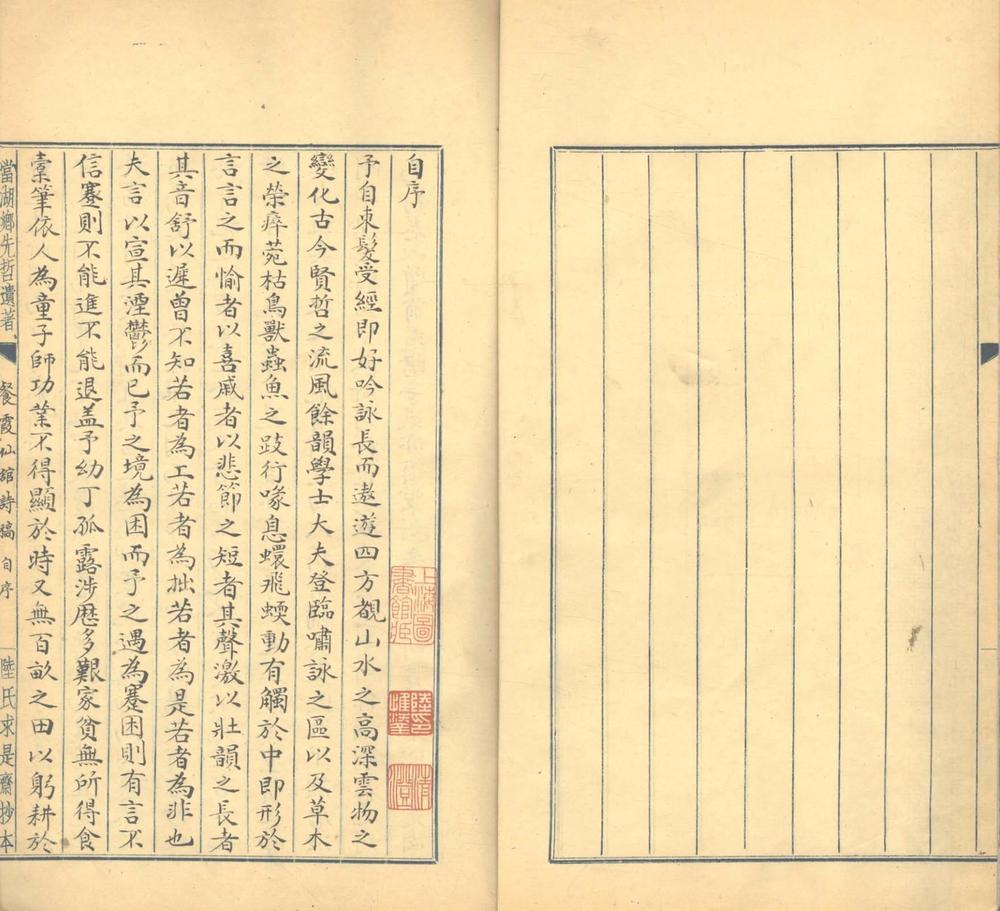 自序
予自束髮受經即好吟詠長而遨遊四方覩山水之高深雲物之
變化古今賢哲之流風餘韻學士大夫登臨嘯詠之區以及草木
之榮瘁菀枯鳥獸蟲魚之跂行喙息蠉飛蝡動有觸於中即形於
言言之而愉者以喜戚者以悲節之短者其聲激以壯韻之長者
其音舒以遲曾不知若者為工若者為拙若者為是若者為非也
夫言以宣其湮鬱而已予之境為困而予之遇為蹇困則有言不
信蹇則不能進不能退盖予幼丁孤露涉歷多艱家貧無所得食
橐筆依人為童子師功業不得顯於時又無百畝之田以躬耕於
當湖鄉先哲遺著
餐霞仙館詩稿 自序
陸氏求是齋抄本
上海圖書館藏
陸惟鎏印
清澄